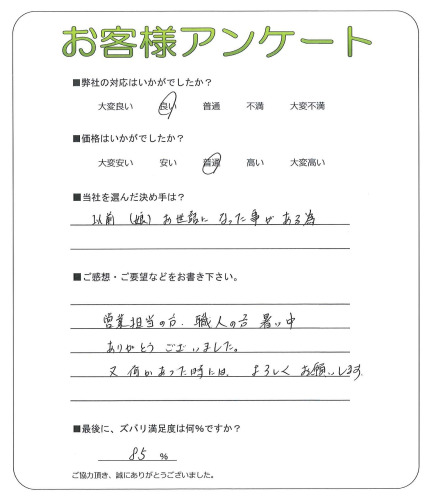 お客様アンケート
■弊社の対応はいかがでしたか？
大変良い 良い 普通 不満 大変不満
■価格はいかがでしたか？
大変安い 安い 普通 高い 大変高い
■当社を選んだ決め手は？
以前（娘）お世話になった事がある為
■ご感想・ご要望などをお書き下さい。
営業担当の方、職人の方暑い中
ありがとうございました。
又何かあった時には、よろしくお願いします。
■最後に、ズバリ満足度は何％ですか？
85 ％
ご協力頂き、誠にありがとうございました。